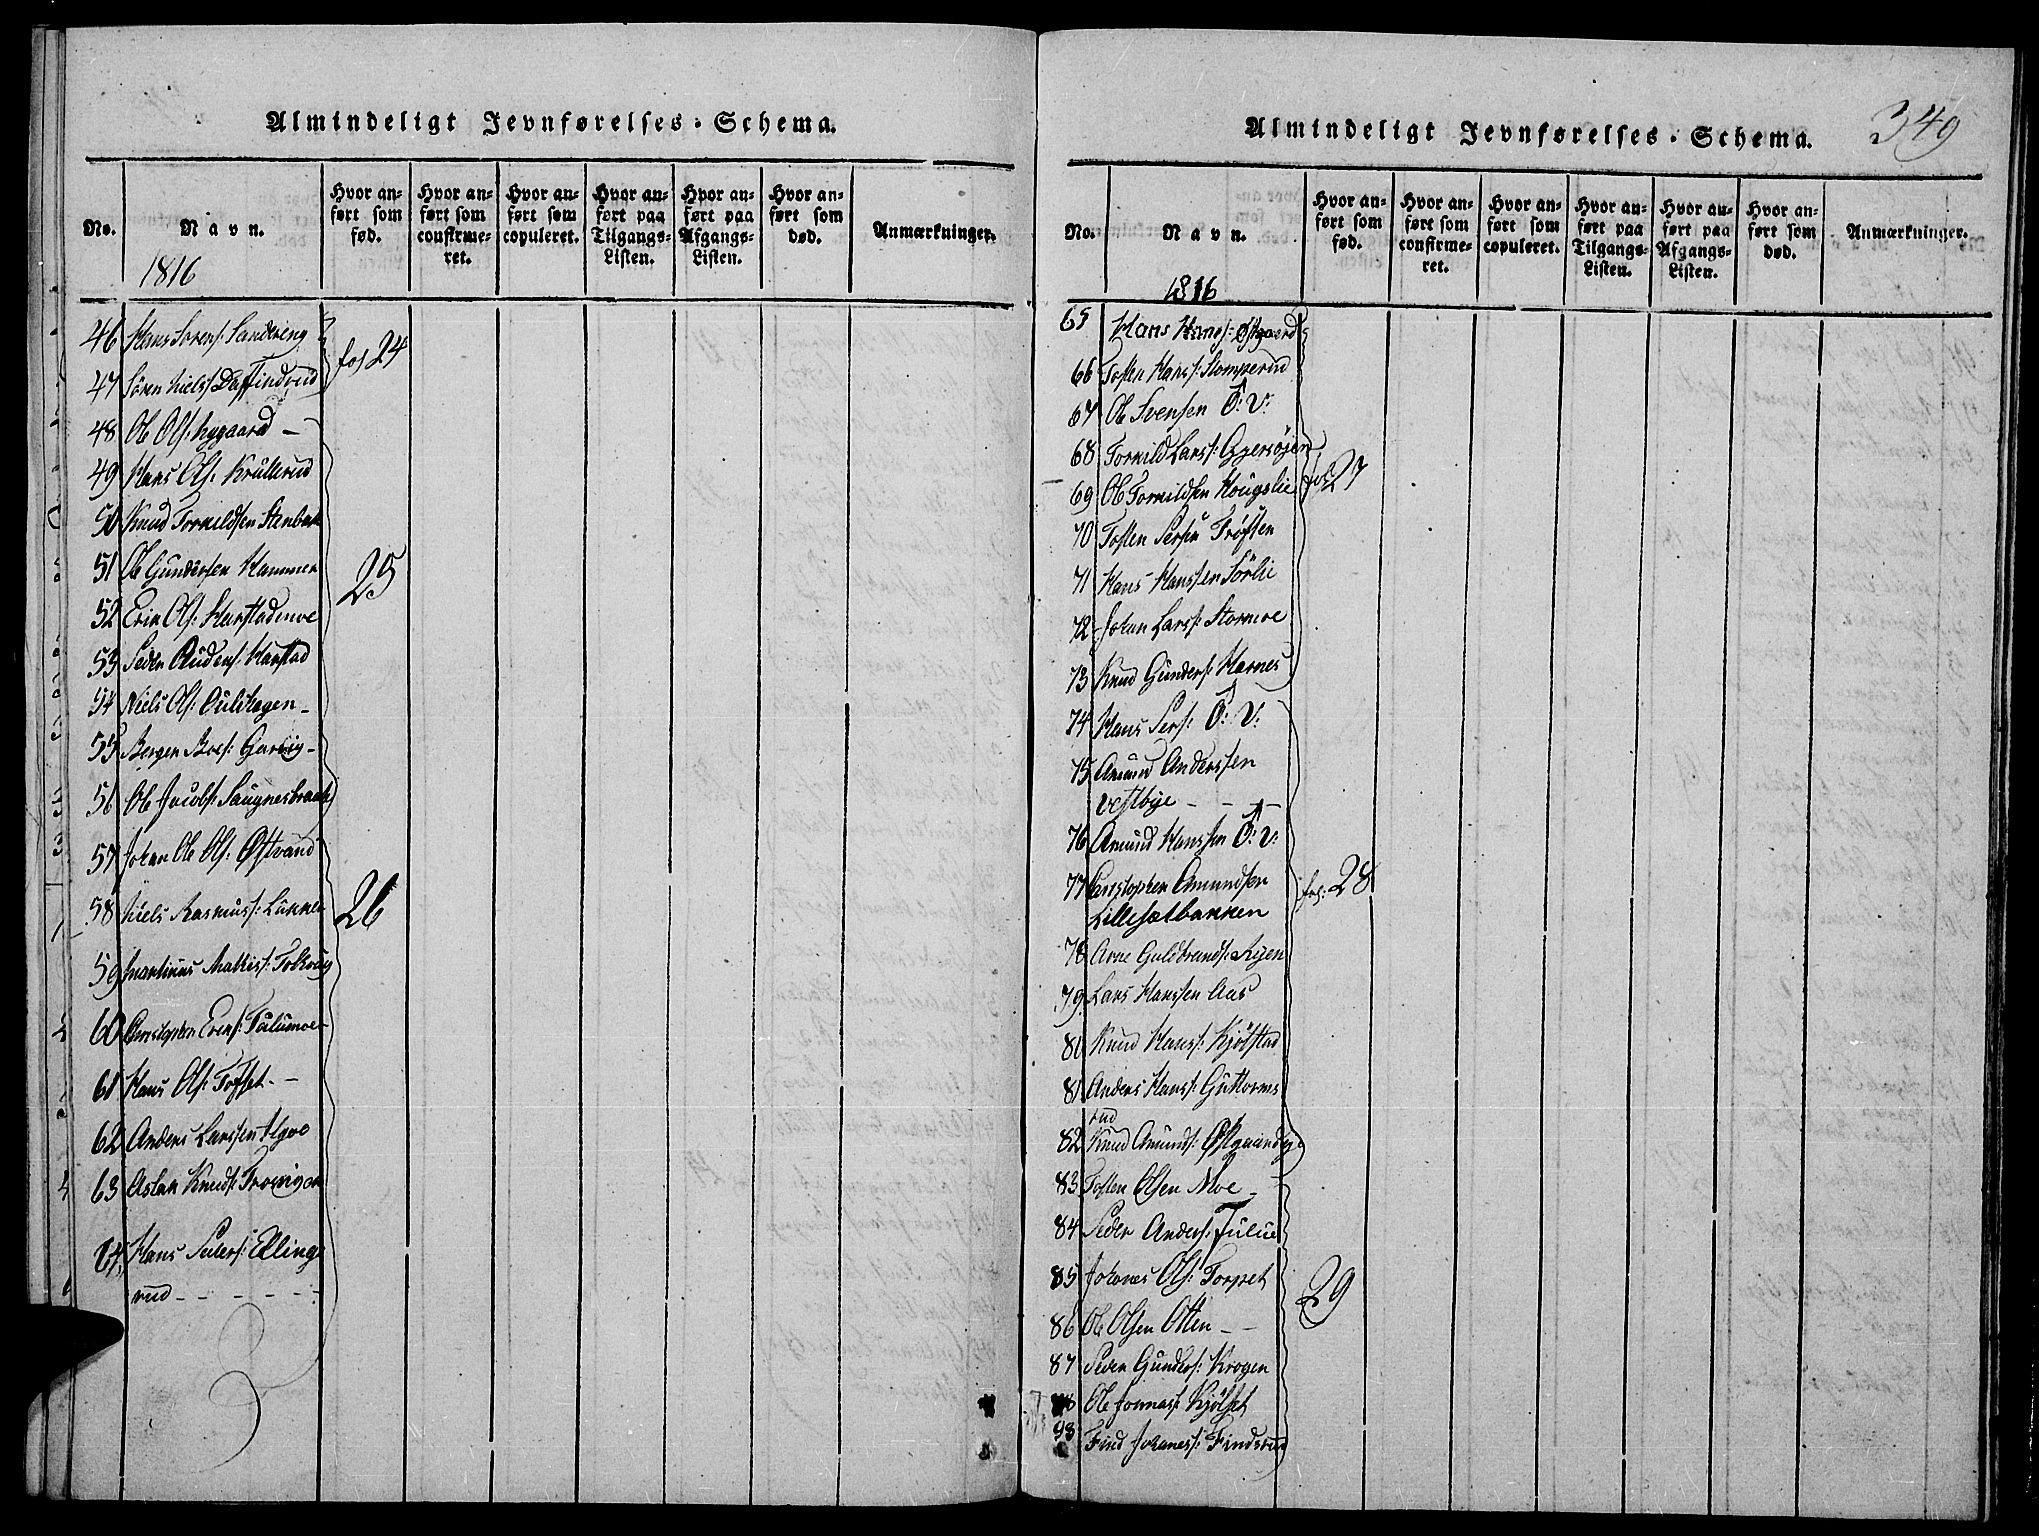 Almindeligt Jevnførelses-Schema.
No.
Navn.
Hvor anført som fød.
Hvor anført som confirmeret.
Hvor anført som copuleret.
Hvor anført paa Tilgangs-Listen.
Hvor anført paa Afgangs-Listen.
Hvor anført som død.
Anmærkninger.
1816
46 Hans Sorens: Sandereng
fol 24
47 Sören Niels: Findrud
48 Ole Ols: Nygaard —
49 Hans Ols: Krullerud
50 Knud Torkildsen Stenbek
51 Ole Gundersen Hammer
25
52 Erik Ols: Harstadmoe
53 Peder Audens: Harstad
54 Niels Ols: Quilhagen —
55 Bergen Boes: Garvig —
56 Ole Jacobs: Saugnesbraat
57 Johan Ole Ols: Østvand
58 Niels Rasmuss: Lunke
26
59 Martinus Mathis:
60 Christopher Evens:
61 Hans Ols: Tofset —
62 Anders Larssen Algoe
63 Aslak Knuds:
64 Hans Peders: Ellings
rud — — — — — —
Almindeligt Jevnførelses-Schema.
349
No.
Navn.
Hvor anført som fød.
Hvor anført som confirmeret.
Hvor anført som copuleret.
Hvor anført paa Tilgangs-Listen.
Hvor anført paa Afgangs-Listen.
Hvor anført som død.
Anmærkninger.
1816
65 Hans Hans: Østgaard
66 Tosten Hans: Stomperud
67 Ole Svensen Ö: V:
68 Torkild Lars: Aggersøyen
69 Ole Torkildsen Hougslie
fol 27
70 Tosten Persen Trøften
71 Hans Hanssen Sörlie
72 Johan Lars: Stormoe
73 Knud Gunders: Harnes
74 Hans Pers: Ö: V:
75 Amund Anderssen
Vestbye — — —
76 Amund Hanssen Ö: V:
77 Christopher Amundsen
fol: 28
Lillesætbakken
78 Arne Guldbrands: Ryen
79 Lars Hanssen Aas
80 Knud Hans: Kjölstad
81 Anders Hans: Guttorms
rud
82 Knud Amunds:
83 Tosten Olsen Moe —
84 Peder Anders: Julie
85 Johanes Ols: Torpet
29
86 Ole Olsen Otten — —
87 Peder Gunders: Krogen
Ole Jonnas: Kjölset
98
Find Johanes: Findsrud